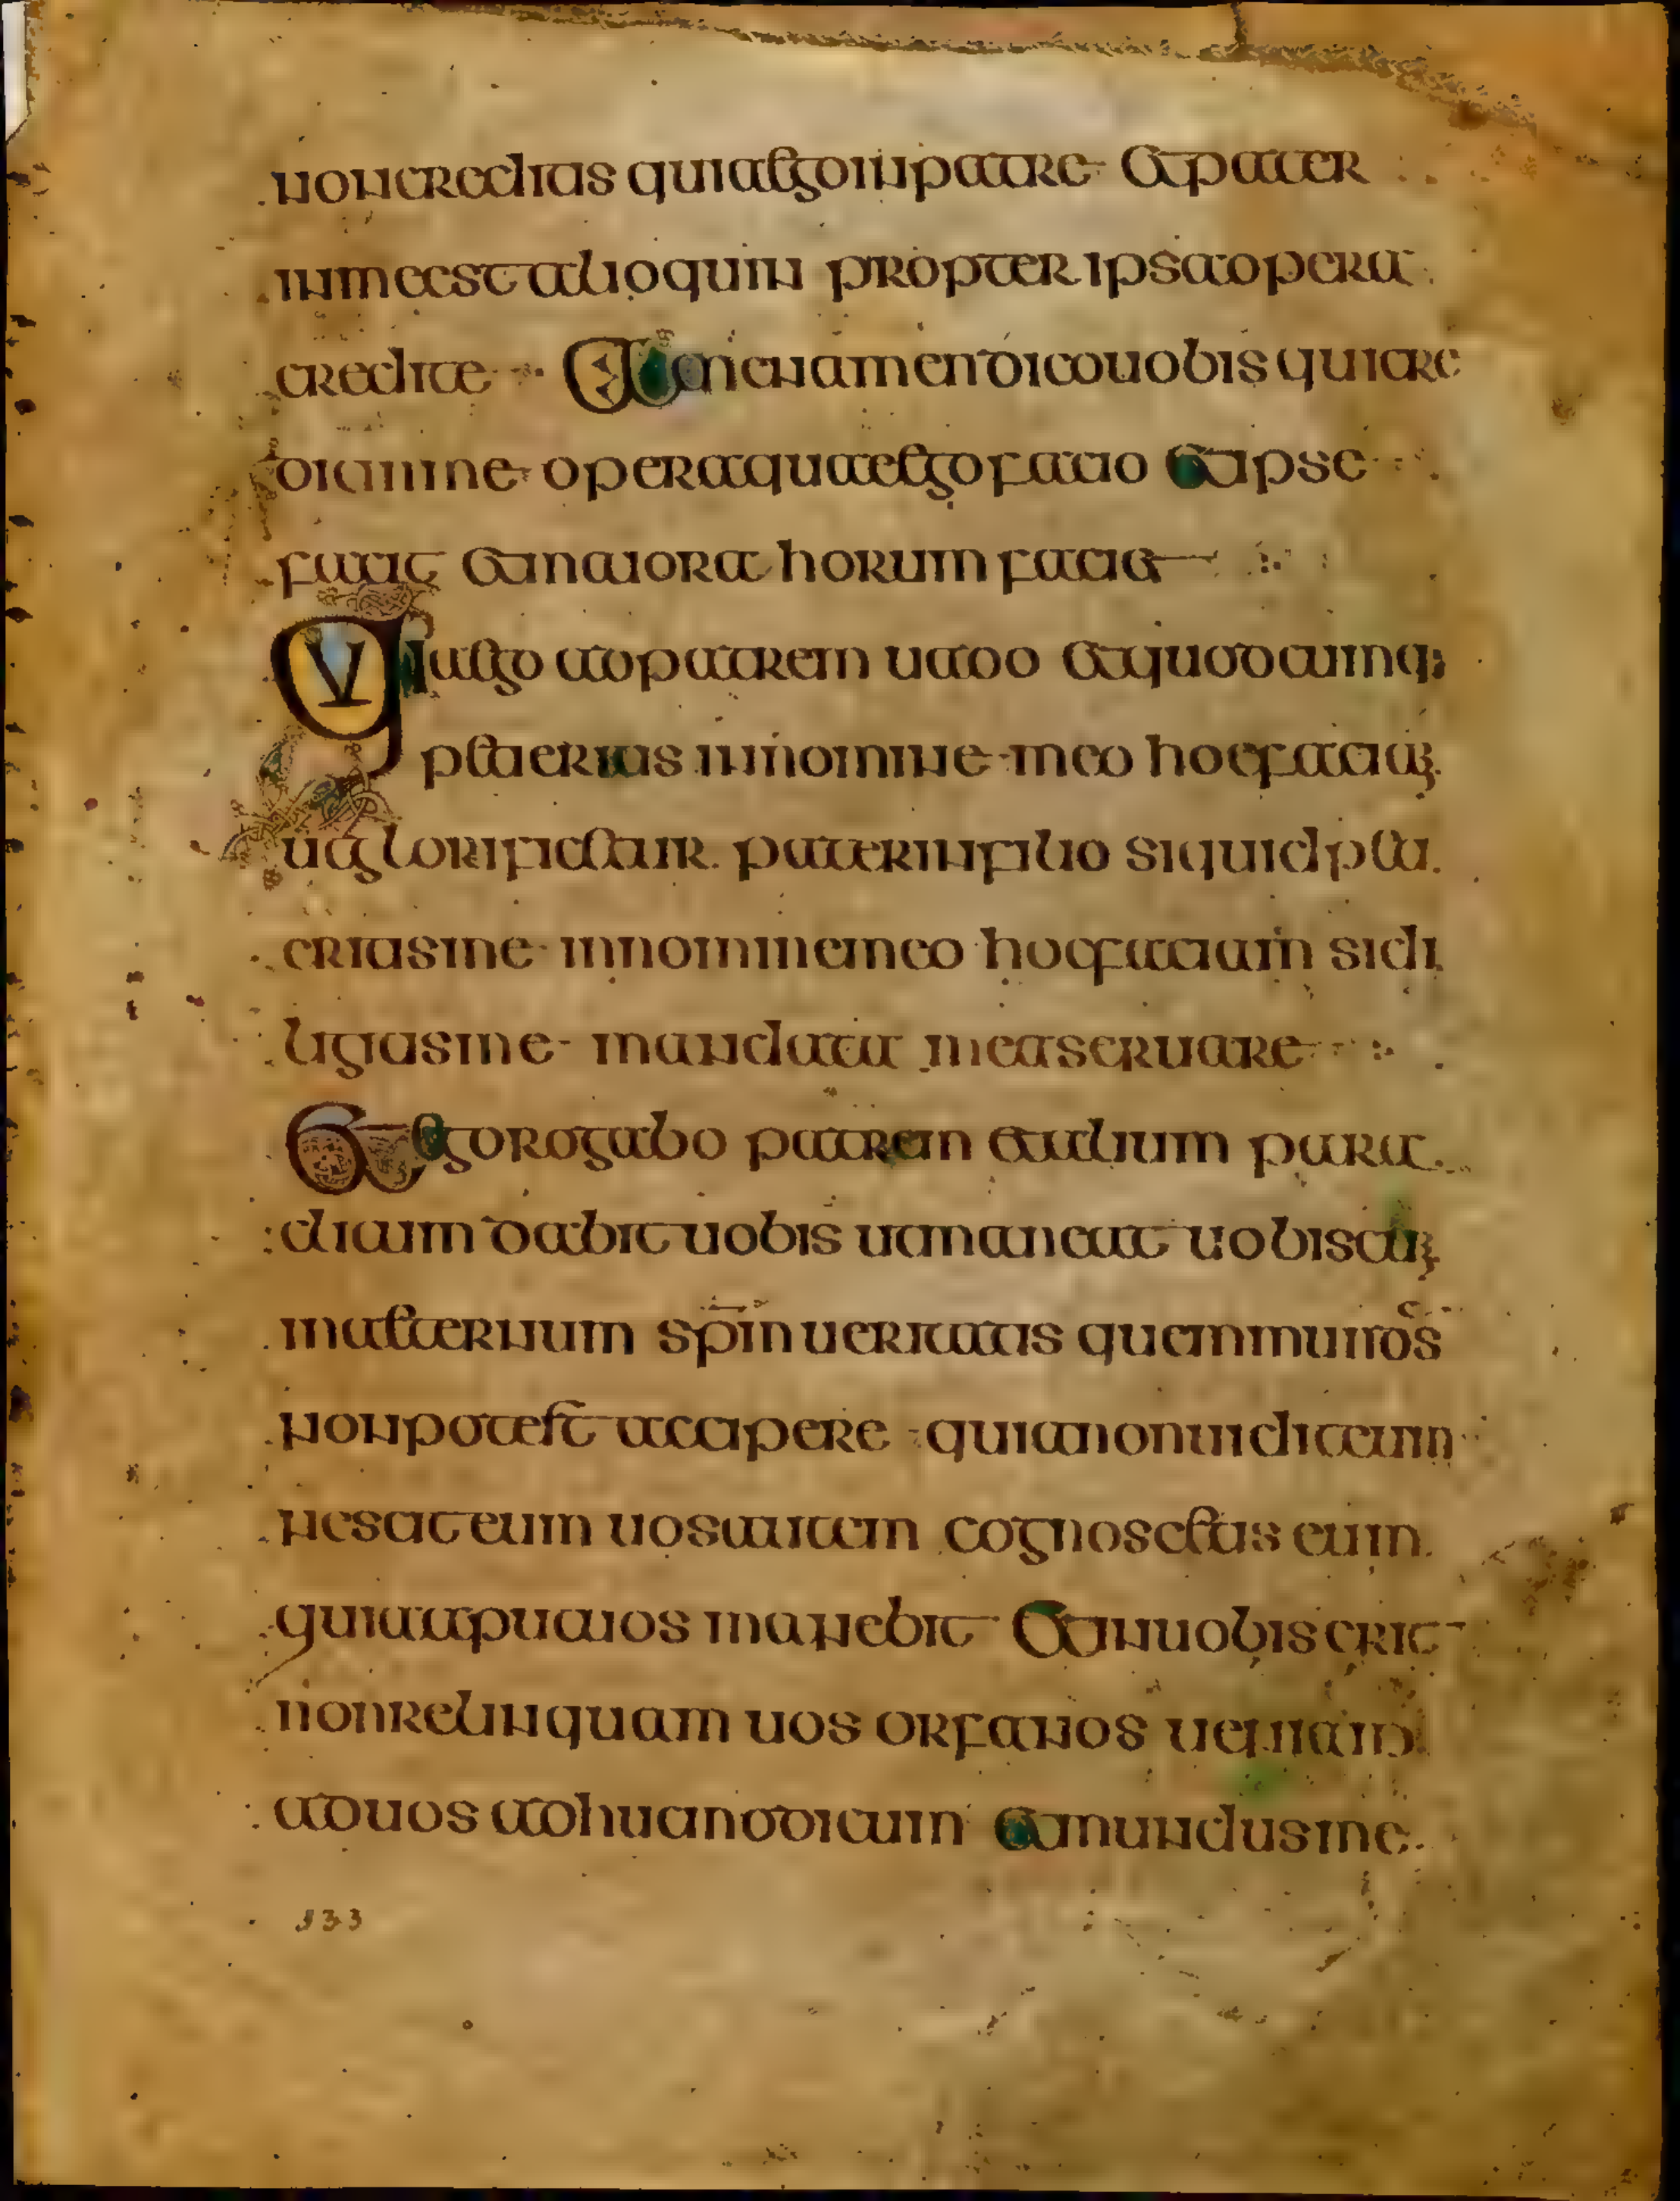 noncreditis quia ego in patre et pater
in me est alioquin propter ipsa opera
credite Amen amen dico uobis qui cre
dit in me opera quae ego facio et ipse
faciet et maiora horum faciet
Quia ego ad patrem uado et quodcumq;
petieritis in nomine meo hoc faciam
ut glorificetur pater in filio si quid peti
eritis me in nomine meo hoc faciam si di
ligitis me mandata mea seruate
Et ego rogabo patrem et alium para
clitum dabit uobis ut maneat uobiscum
in aeternum spm ueritatis quem mundus
non potest accipere quia non uidit eum
nescit eum uos autem cognoscetis eum
quia apud uos manebit et in uobis erit
non relinquam uos orfanos ueniam
ad uos adhuc modicum et mundus me
133